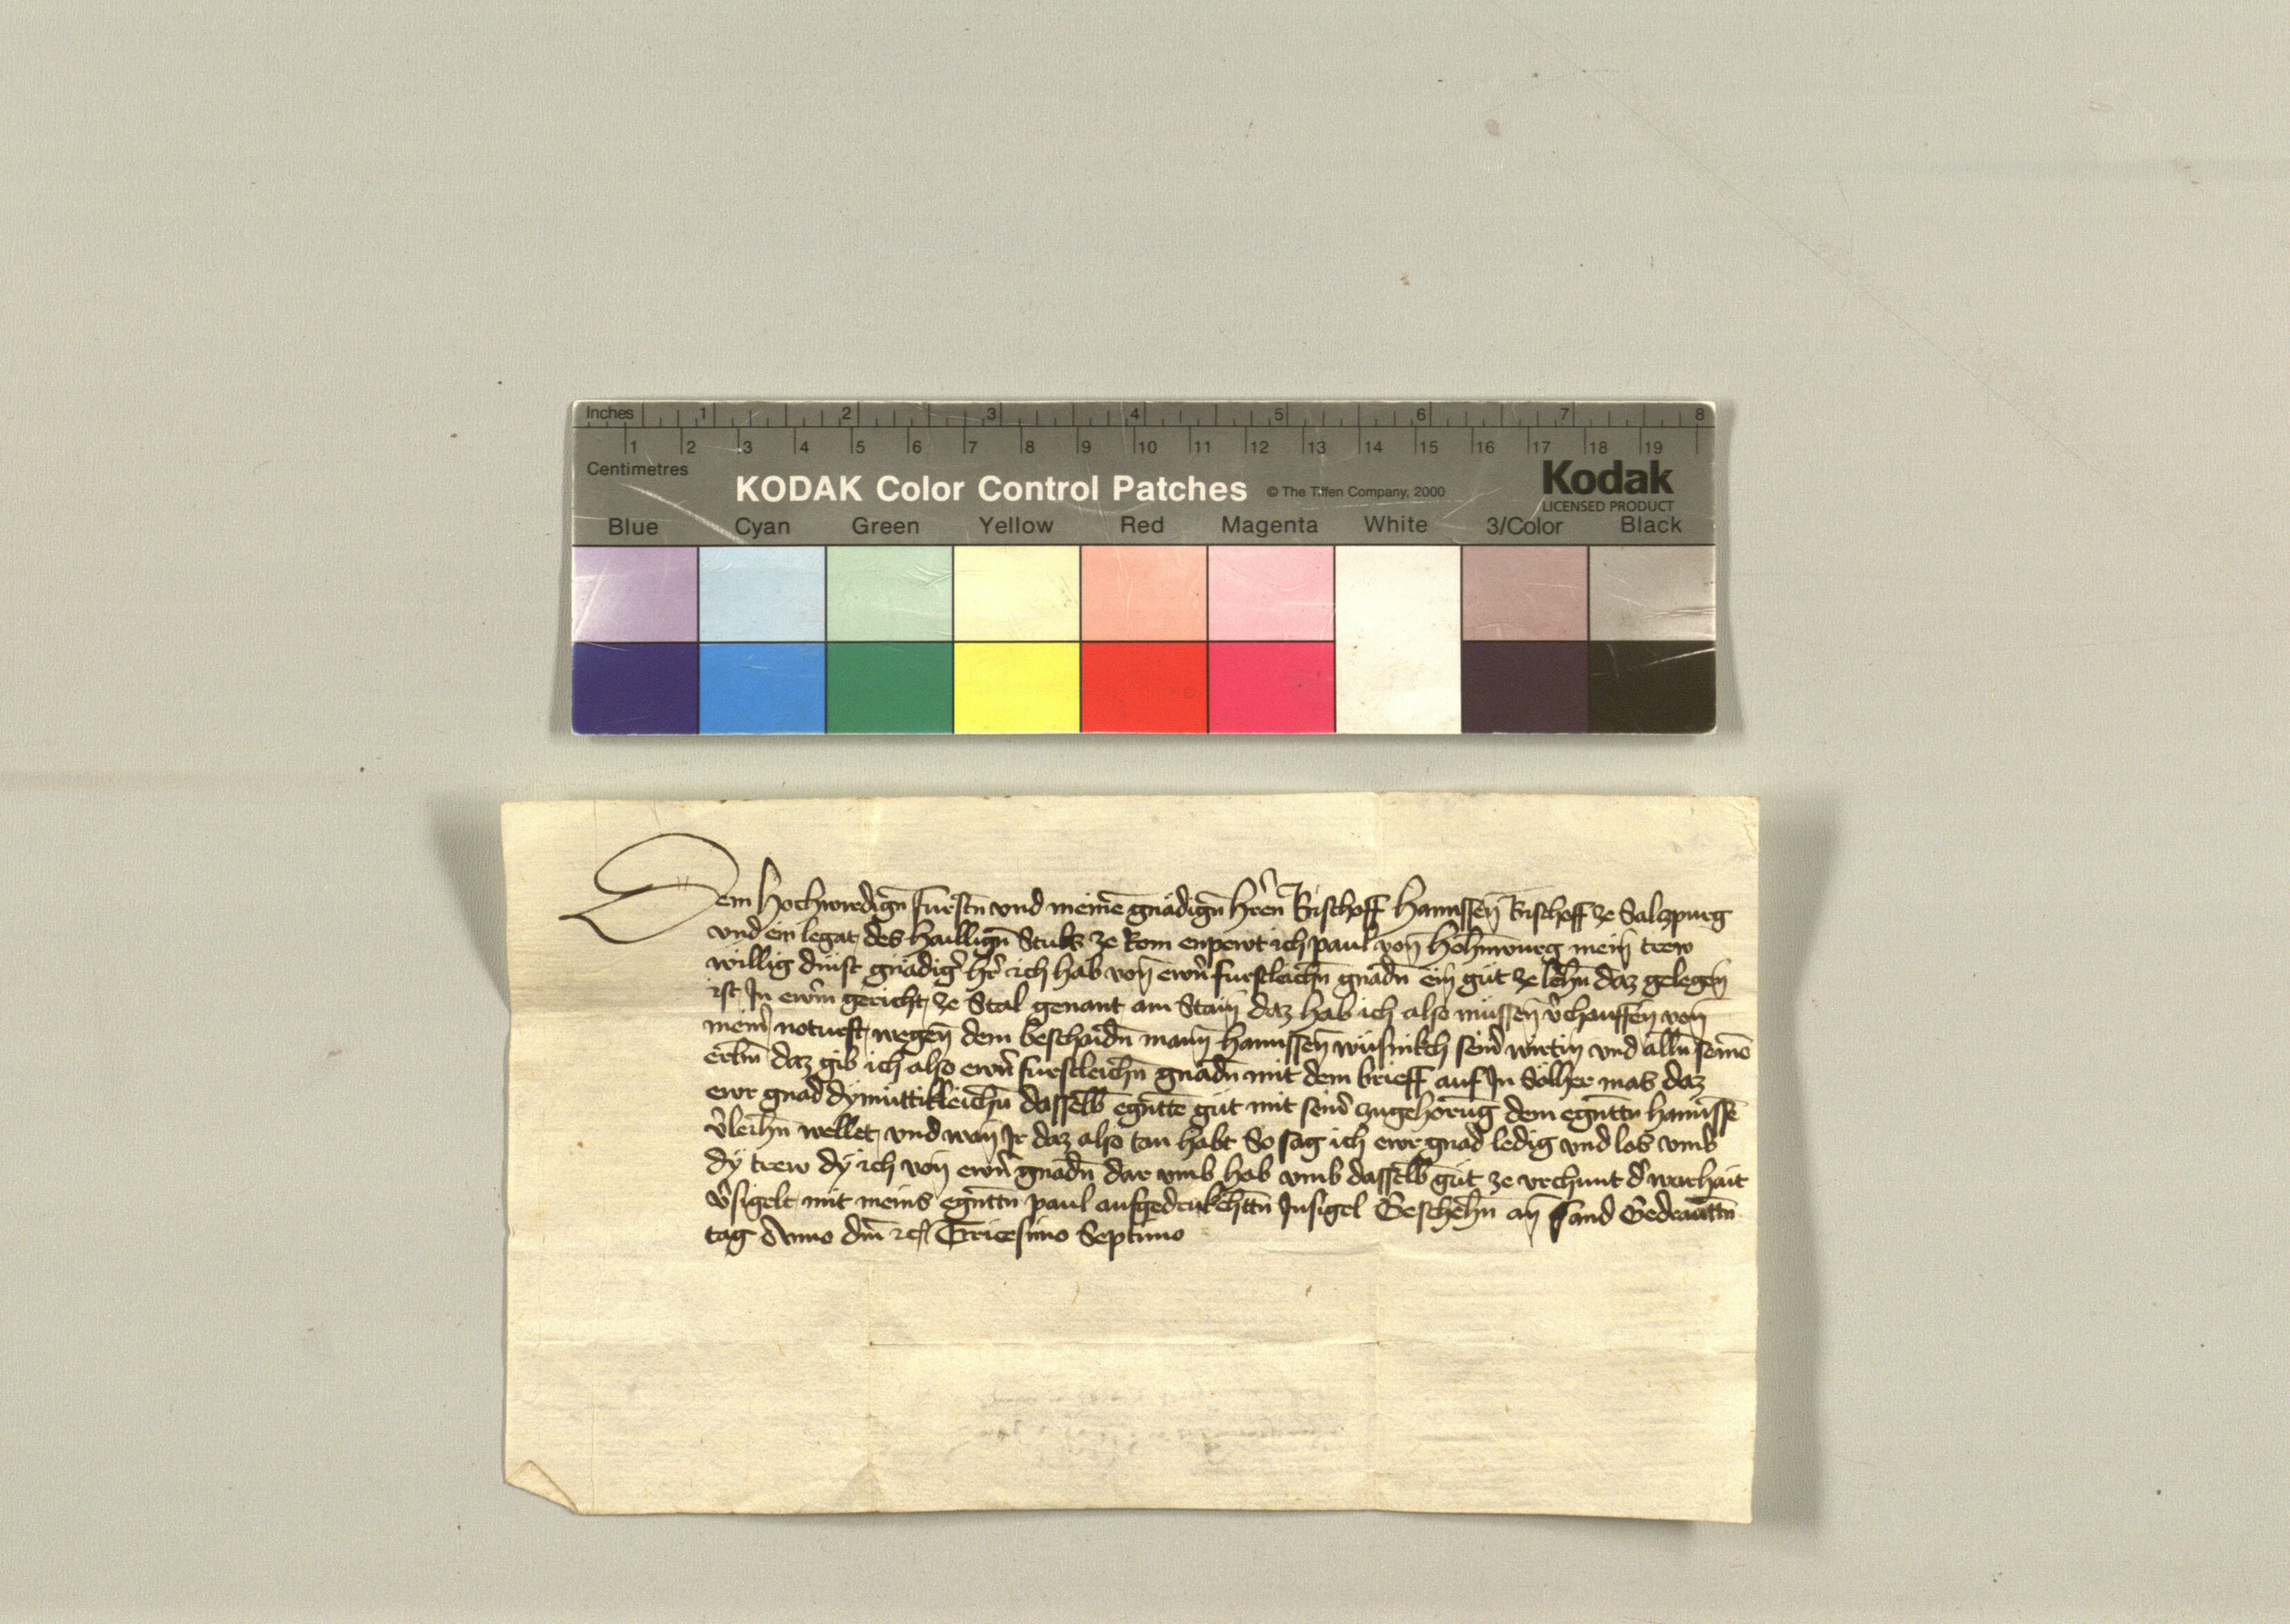 Inches 1 2 3 4 5 6 7 8
1 2 3 4 5 6 7 8 9 10 11 12 13 14 15 16 17 18 19
Centimetres
KODAK Color Control Patches © The Tiffen Company, 2000 Kodak
LICENSED PRODUCT
Blue Cyan Green Yellow Red Magenta White 3/Color Black
Dem Hochwirdign̄ fursten̄ vnd meinē gnädign̄ hr̄en Bischoff Hannssen̄ Bischoff ze Salzpurg
vnd ein legat des haillign̄ Stuls ze Rom enpewt ich paul von̄ Hohnwurg mein̄ trew
willig dinst gnädigr̄ hr̄ ich hab von̄ ewrn̄ furstleichn̄ gnadn̄ ein̄ gut ze lehn̄ daz gelegen̄
ist In ewrm̄ gericht ze Stal genant am Stain̄ daz hab ich also mussen̄ vr̄chauffen̄ von̄
meinr̄ noturft wegen̄ dem beschaidn̄ mann̄ hannssen̄ seinr̄ wirtin vnd alln̄ seinē
erbm̄ daz gib ich also ewrn̄ furstleichn̄ gnadn̄ mit dem brieff auf In Sölher mas daz
ewr gnad dymuttikleichn̄ dasselb egn̄te gut mit seinr̄ zugehorūg dem egn̄tn hannssē
vr̄leihn̄ wellet vnd wan̄ Ir daz also tan habt So sag ich ewr gnad ledig vnd los vmb
dÿ trew dÿ ich von̄ ewrn̄ gnadn̄ dar vmb hab vmb dasselb gut ze vrchunt dr̄ warhait
vr̄sigelt mit meins egn̄tn paul aufgedrukchtn̄ Insigel Geschehn̄ an̄ sand Gedrawttn̄
tag Anno dm̄ etc Tricesimo Septimo